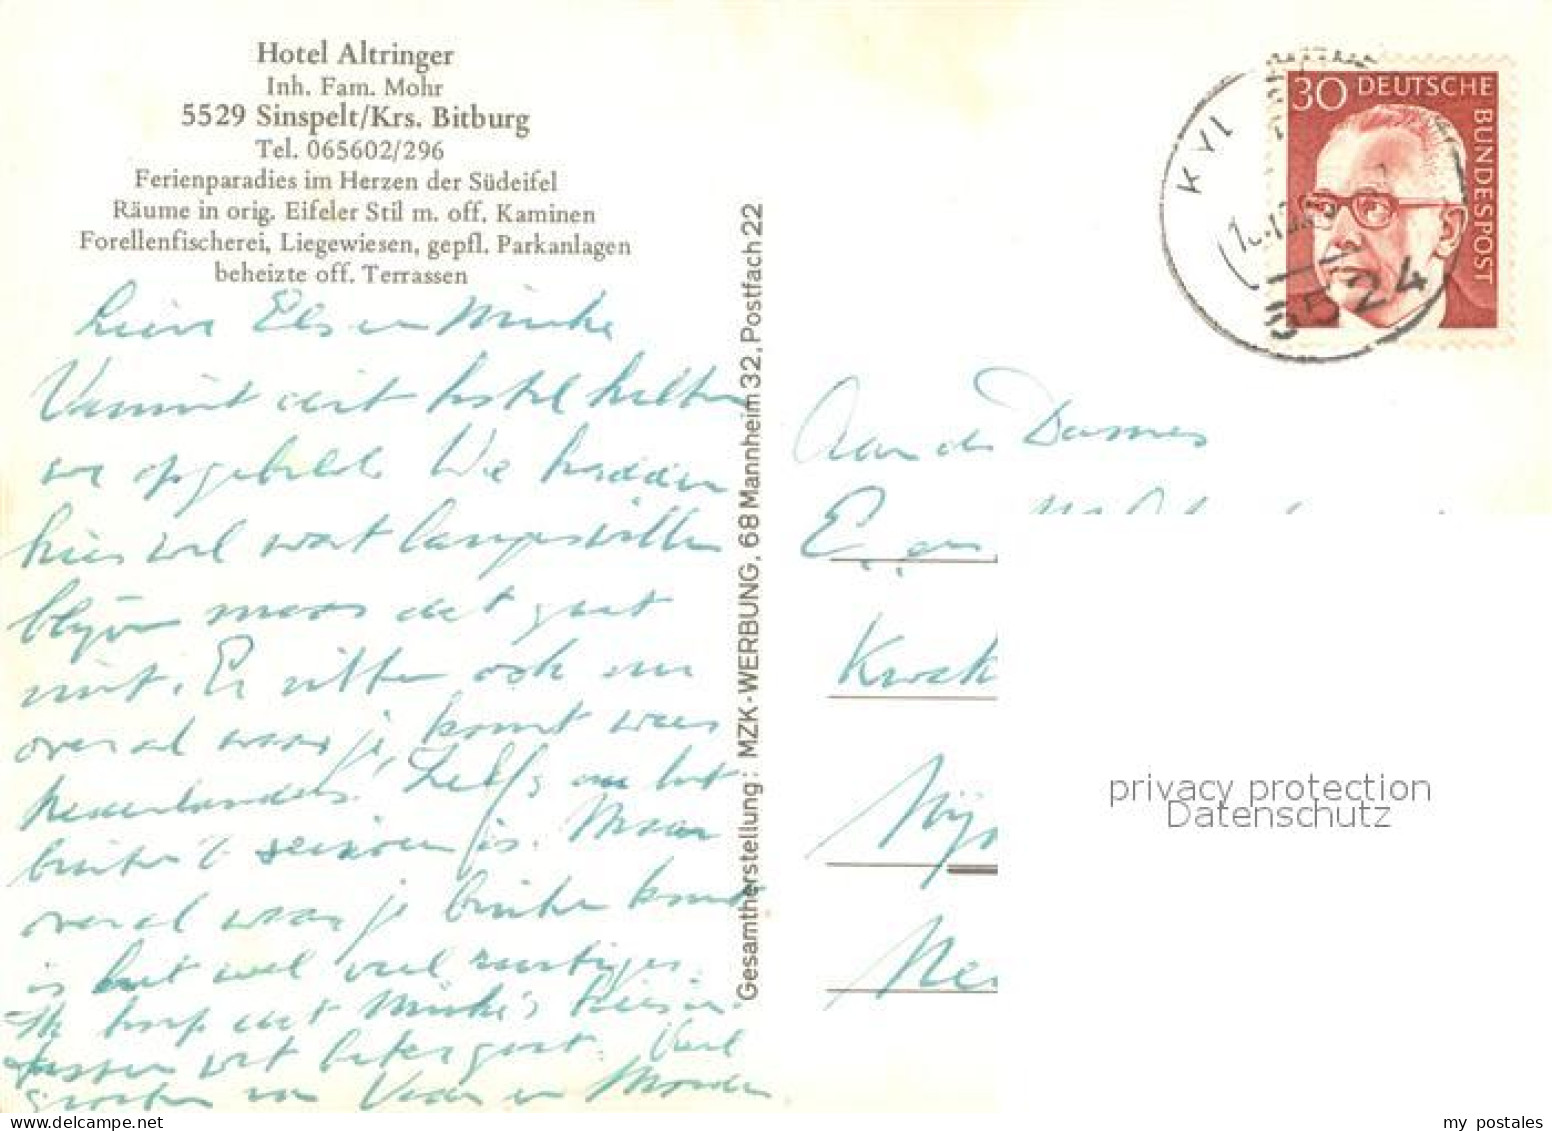 Hotel Altringer
Inh. Fam. Mohr
5529 Sinspelt/Krs. Bitburg
Tel. 065602/296
Ferienparadies im Herzen der Südeifel
Räume in orig. Eifeler Stil m. off. Kaminen
Forellenfischerei, Liegewiesen, gepfl. Parkanlagen
beheizte off. Terrassen
Lieve Els en Mieke
Vanuit dit hotel hebben
we opgebeld. We hadden
hier wel wat langer willen
blijven maar dat gaat
niet. Er zitten ook en
overal waar je komt weer
Nederlanders. Zelfs nu het
buiten 't seizoen is. Maar
overal waar je buiten komt
is het wel veel rustiger.
Ik hoop dat Mieke's
wat beter gaat. Veel
groeten van Vader en Moeder
Gesamtherstellung: MZK-WERBUNG, 68 Mannheim 32, Postfach 22
30 DEUTSCHE
BUNDESPOST
KYL
5524
Aan de Dames
E. en
Kwak
Nij
Ne
privacy protection
Datenschutz
my postales